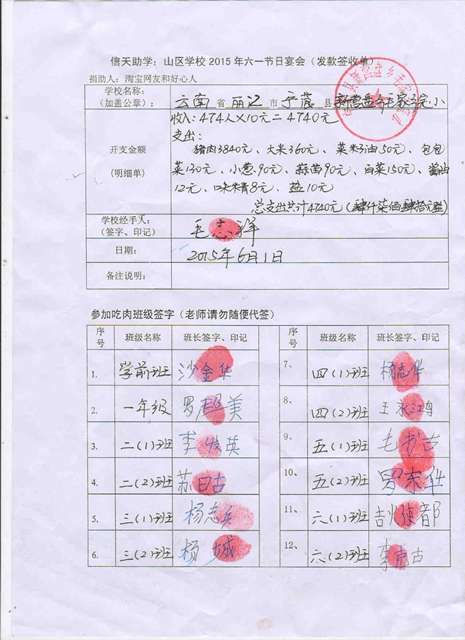 信天助学：山区学校 2015 年六一节日宴会（发款签收单）
捐助人：淘宝网友和好心人
学校名称：
（加盖公章）：
云南省丽江市宁蒗县
小
收入：474人×10元=4740元
支出：
开支金额
（明细单）
猪肉3840元、大米360元、菜籽油50元、包包
菜130元、小葱90元、蒜苗90元、白菜150元、酱油
12元、味精8元、盐10元
总支出共计4740元
学校经手人：
（签字、印记）
毛志祥
日期：
2015年6月1日
备注说明：
参加吃肉班级签字（老师请勿随便代签）
序号 班级名称 班长签字、印记 序号 班级名称 班长签字、印记
1. 学前班 沙金华 7、 四(1)班 杨志华
2. 一年级 罗 美 8、 四(2)班 王
3. 二(1)班 李 英 9、 五(1)班 毛 古
4. 二(2)班 苏日古 10、 五(2)班 罗东华
5. 三(1)班 杨志 11、 六(1)班
6. 三(2)班 杨城 12、 六(2)班 李 古